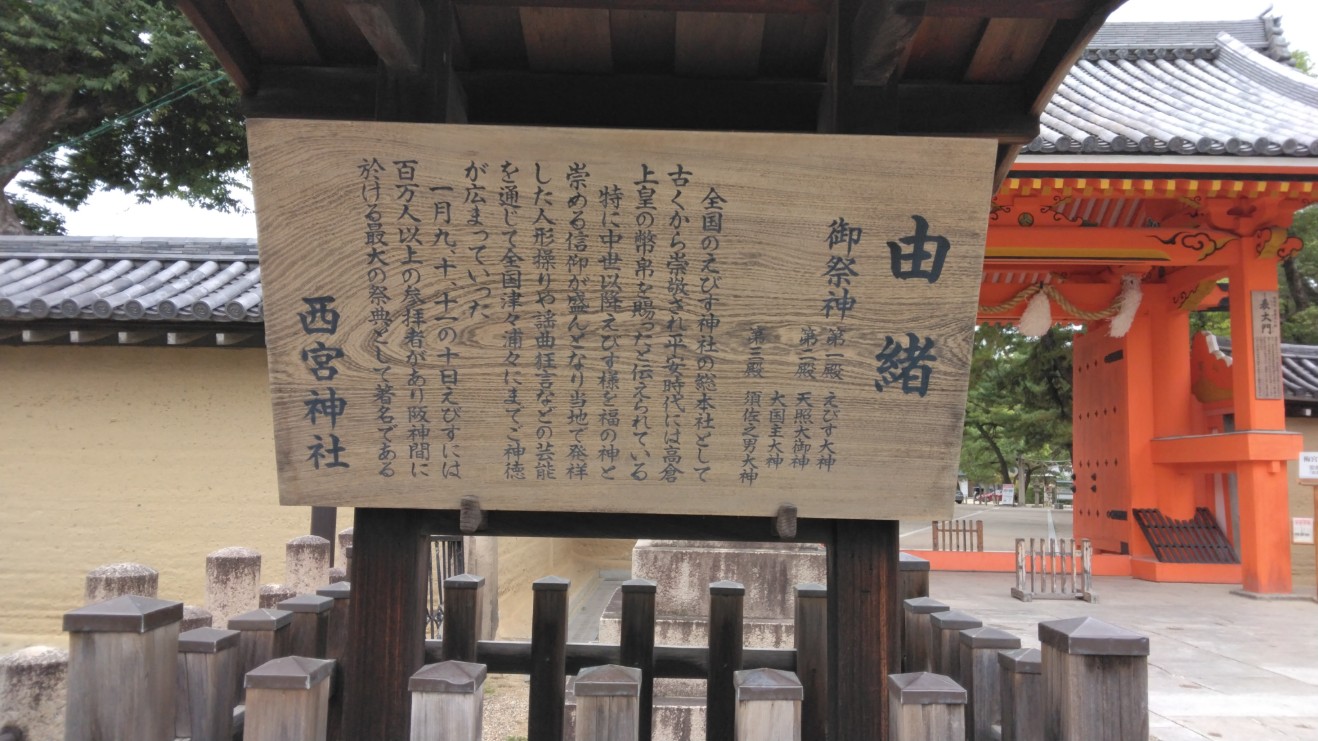 由緒
御祭神
第一殿 えびす大神
第二殿 天照大御神
大国主大神
第三殿 須佐之男大神
全国のえびす神社の総本社として
古くから崇敬され平安時代には高倉
上皇の幣帛を賜ったと伝えられている
特に中世以降えびす様を福の神と
崇める信仰が盛んとなり当地で発祥
した人形操りや謡曲狂言などの芸能
を通じて全国津々浦々にまでご神徳
が広まっていった
一月九、十、十一の十日えびすには
百万人以上の参拝者があり阪神間に
於ける最大の祭典として著名である
西宮神社
表大門